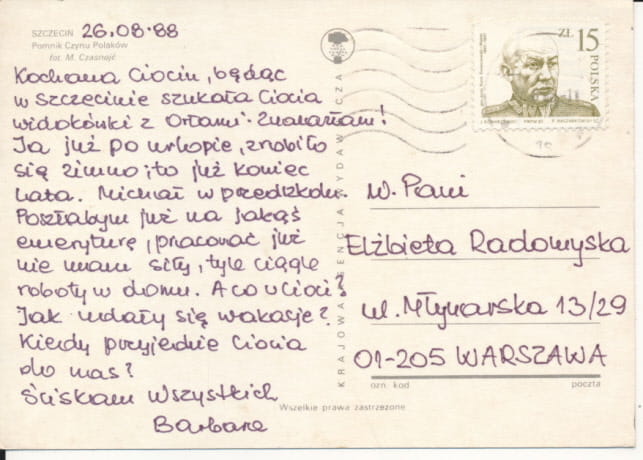 SZCZECIN 26.08.88
Pomnik Czynu Polaków
fot. M. Czasnojć
Kochana Ciociu, będąc
w Szczecinie szukała Ciocia
widokówki z Orłami. Znalazłam!
Ja już po urlopie, zrobiło
się zimno, to już koniec
lata. Michał w przedszkolu.
Poszłabym już na jakąś
emeryturę, pracować już
nie mam siły, tyle ciągle
roboty w domu. A co u Cioci?
Jak udały się wakacje?
Kiedy przyjedzie Ciocia
do nas?
Ściskam Wszystkich
Barbara
KRAJOWA AGENCJA WYDAWNICZA
ZŁ 15
POLSKA
W. Pani
Elżbieta Radomyska
ul. Młynarska 13/29
01-205 WARSZAWA
ozn. kod poczta
Wszelkie prawa zastrzeżone